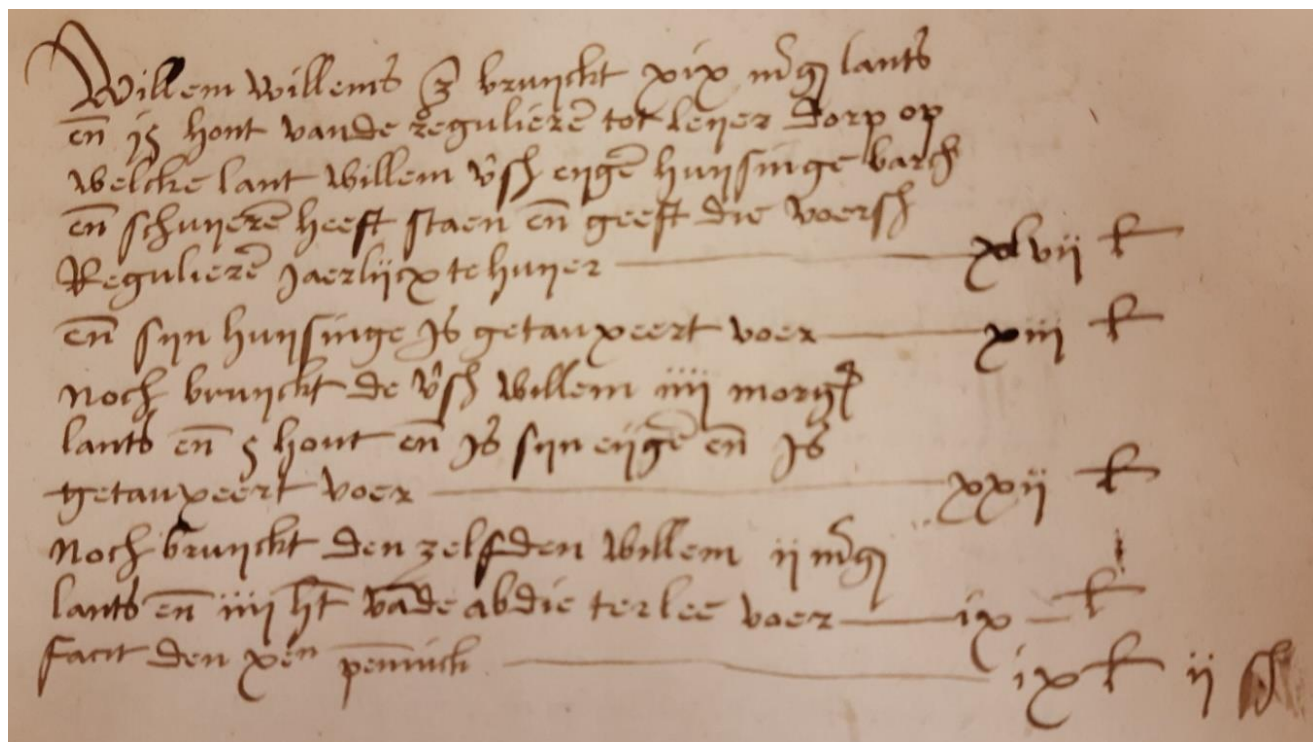 Willem Willems z bruyckt xix m̄g lants
en̄ j½ hont vande regulierē tot leyer dorp op
welcke lant Willem v̄s eygē huysinge barch
en̄ schuyerē heeft staen en̄ geeft die voers
Regulierē Jaerlijcx te huyer xlvij £
en̄ syn huysinge Is getauxeert voer xiij £
Noch bruyckt de v̄s Willem iiij morg
lants en̄ ½ hont en̄ Is syn eygē en̄ Is
getauxeert voer xxij £
Noch bruyckt den zelfden Willem ij m̄g
lants en̄ iiij ht̄ vāde abdie ter lee voer ix £
facit den xen pennīck ix £ ij s